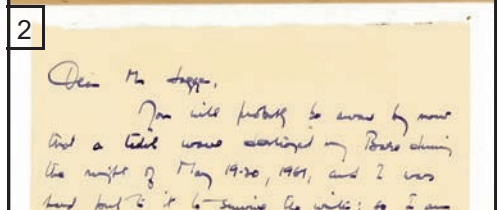 2
Dear Mr Jagger,
You will probably be aware by now
that a tidal wave destroyed my Base during
the night of May 19-20, 1961, and I was
hard put to it to survive the while; so I am